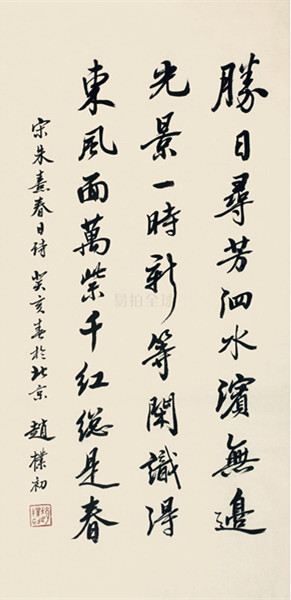 勝日尋芳泗水濱無邊
光景一時新等閑識得
東風面萬紫千红總是春
宋朱熹春日詩 癸亥春於北京 趙樸初
易拍全球